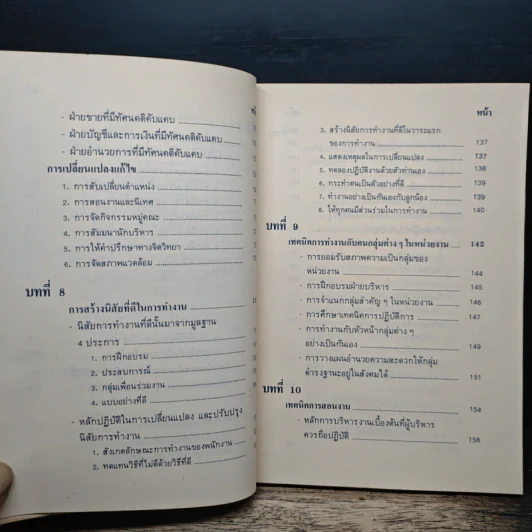 - ฝ่ายขายที่มีทัศนคติคับแคบ
- ฝ่ายบัญชีและการเงินที่มีทัศนคติคับแคบ
- ฝ่ายอำนวยการที่มีทัศนคติคับแคบ
การเปลี่ยนแปลงแก้ไข
1. การสับเปลี่ยนตำแหน่ง
2. การสอนงานและนิเทศ
3. การจัดกิจกรรมหมู่คณะ
4. การสัมมนานักบริหาร
5. การให้คำปรึกษาทางจิตวิทยา
6. การจัดสภาพแวดล้อม
บทที่ 8
การสร้างนิสัยที่ดีในการทำงาน
- นิสัยการทำงานที่ดีนั้นมาจากมูลฐาน
4 ประการ
1. การฝึกอบรม
2. ประสบการณ์
3. กลุ่มเพื่อนร่วมงาน
4. แบบอย่างที่ดี
- หลักปฏิบัติในการเปลี่ยนแปลง และปรับปรุง
นิสัยการทำงาน
1. สังเกตลักษณะการทำงานของพนักงาน
2. ทดแทนวิธีที่ไม่ดีด้วยวิธีที่ดี
หน้า
3. สร้างนิสัยการทำงานที่ดีในวาระแรก
ของการทำงาน 137
4. แสดงเหตุผลในการเปลี่ยนแปลง 137
5. ทดลองปฏิบัติงานด้วยตัวท่านเอง 138
6. กระทำตนเป็นตัวอย่างที่ดี 139
7. ทำงานอย่างเป็นกันเองกับลูกน้อง 139
8. ให้ทุกคนมีส่วนร่วมในการทำงาน 140
บทที่ 9
เทคนิคการทำงานกับคนกลุ่มต่าง ๆ ในหน่วยงาน 142
- การยอมรับสภาพความเป็นกลุ่มของ
หน่วยงาน 144
- การฝึกอบรมฝ่ายบริหาร 145
- การจำแนกกลุ่มสำคัญ ๆ ในหน่วยงาน 146
- การศึกษาเทคนิคการปฏิบัติการ 147
- การทำงานกับหัวหน้ากลุ่มต่าง ๆ
อย่างเป็นกันเอง 149
- การวางแผนอำนวยความสะดวกให้กลุ่ม
ดำรงฐานะอยู่ในสังคมได้ 151
บทที่ 10
เทคนิคการสอนงาน 154
- หลักการบริหารงานเบื้องต้นที่ผู้บริหาร
ควรถือปฏิบัติ 156